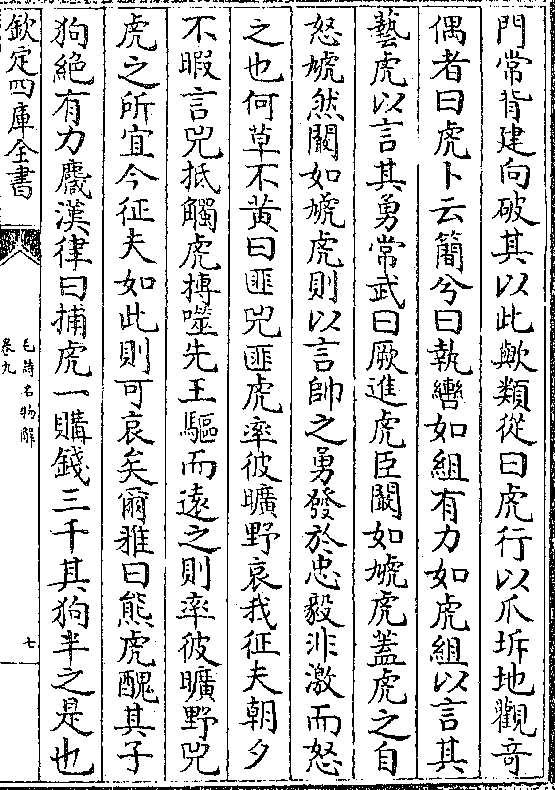 門常背建向破其以此歟類從曰虎行以爪坼地觀奇
偶者曰虎卜云簡兮曰執轡如組有力如虎組以言其
藝虎以言其勇常武曰厥進虎臣闞如虓虎蓋虎之自
怒虓然闞如虓虎則以言帥之勇發於忠毅非激而怒
之也何草不黄曰匪兕匪虎率彼曠野哀我征夫朝夕
不暇言兕抵觸虎摶噬先王驅而逺之則率彼曠野兕
虎之所宜今征夫如此則可哀矣爾雅曰熊虎醜其子
狗絶有力麙漢律曰捕虎一購錢三千其狗半之是也
欽定四庫全書
毛詩名物解
卷九
七